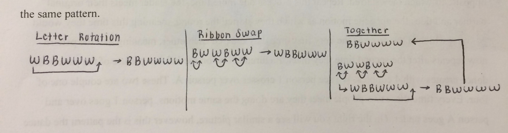 the same pattern.
Letter Rotation
WBBWWW → BBWWWW
Ribbon Swap
BWWBWW → WBBWWW
Together
BBWWWW
BWWBWW
WBBWWW → BBWWWW